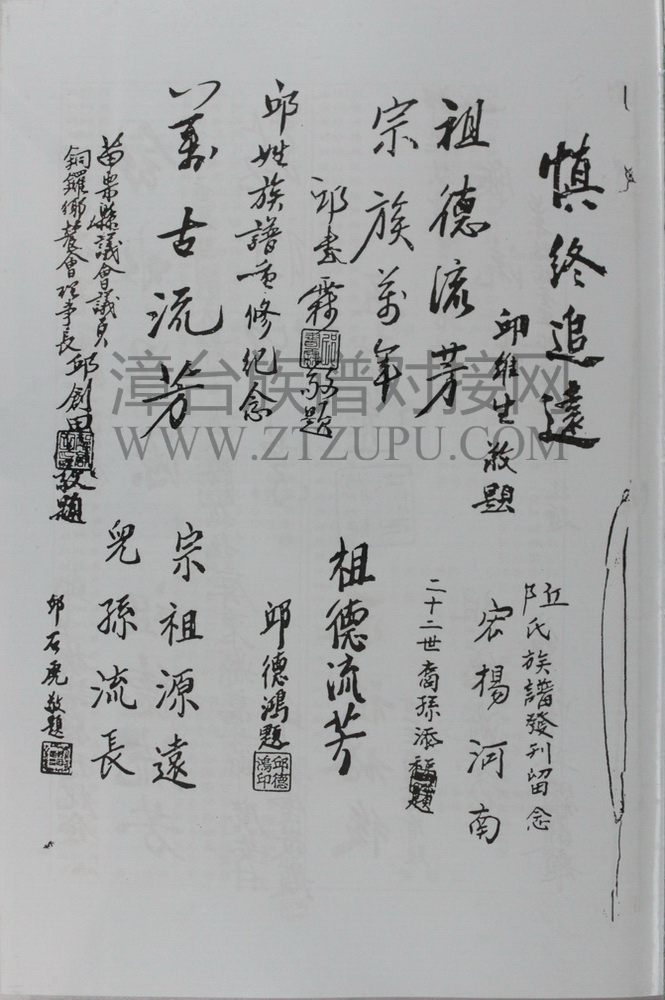 慎終追遠
邱維生敬題
祖德流芳
宗族萬年
邱書霖敬題
邱姓族譜重修紀念
萬古流芳
苗栗縣議會議員
銅鑼鄉農會理事長邱創田敬題
邱氏族譜發刊留念
宏楊河南
二十二世裔孫添福題
祖德流芳
邱德鴻題
邱德鴻印
宗祖源遠
兒孫流長
邱石虎敬題
漳台族谱对接网
WWW.ZTZUPU.COM